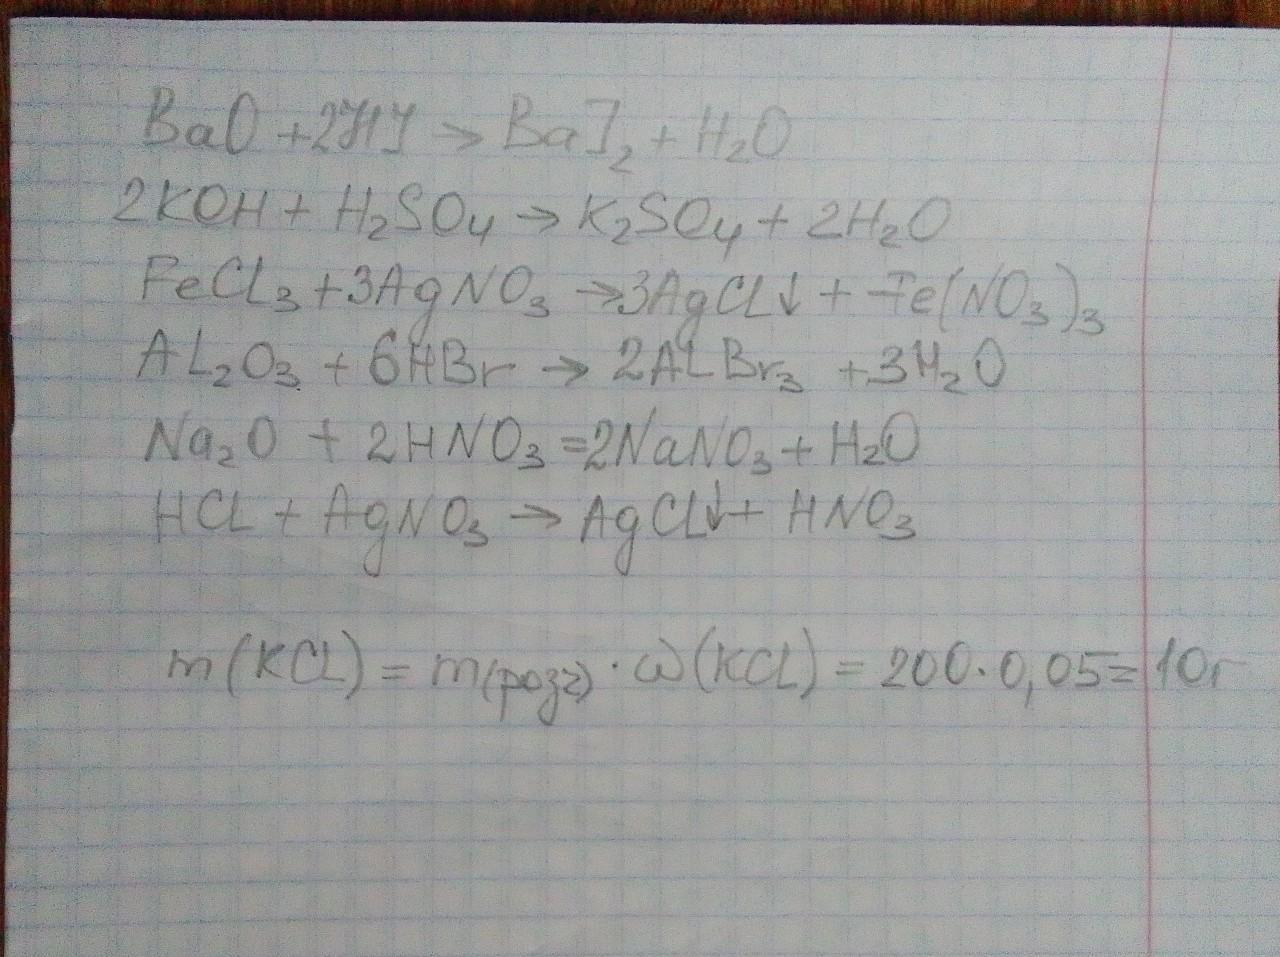 BaO + 2HJ → BaJ₂ + H₂O
2KOH + H₂SO₄ → K₂SO₄ + 2H₂O
FeCl₃ + 3AgNO₃ → 3AgCl↓ + Fe(NO₃)₃
Al₂O₃ + 6HBr → 2AlBr₃ + 3H₂O
Na₂O + 2HNO₃ = 2NaNO₃ + H₂O
HCl + AgNO₃ → AgCl↓ + HNO₃
m(KCl) = m(розч) · ω(KCl) = 200 · 0,05 = 10г